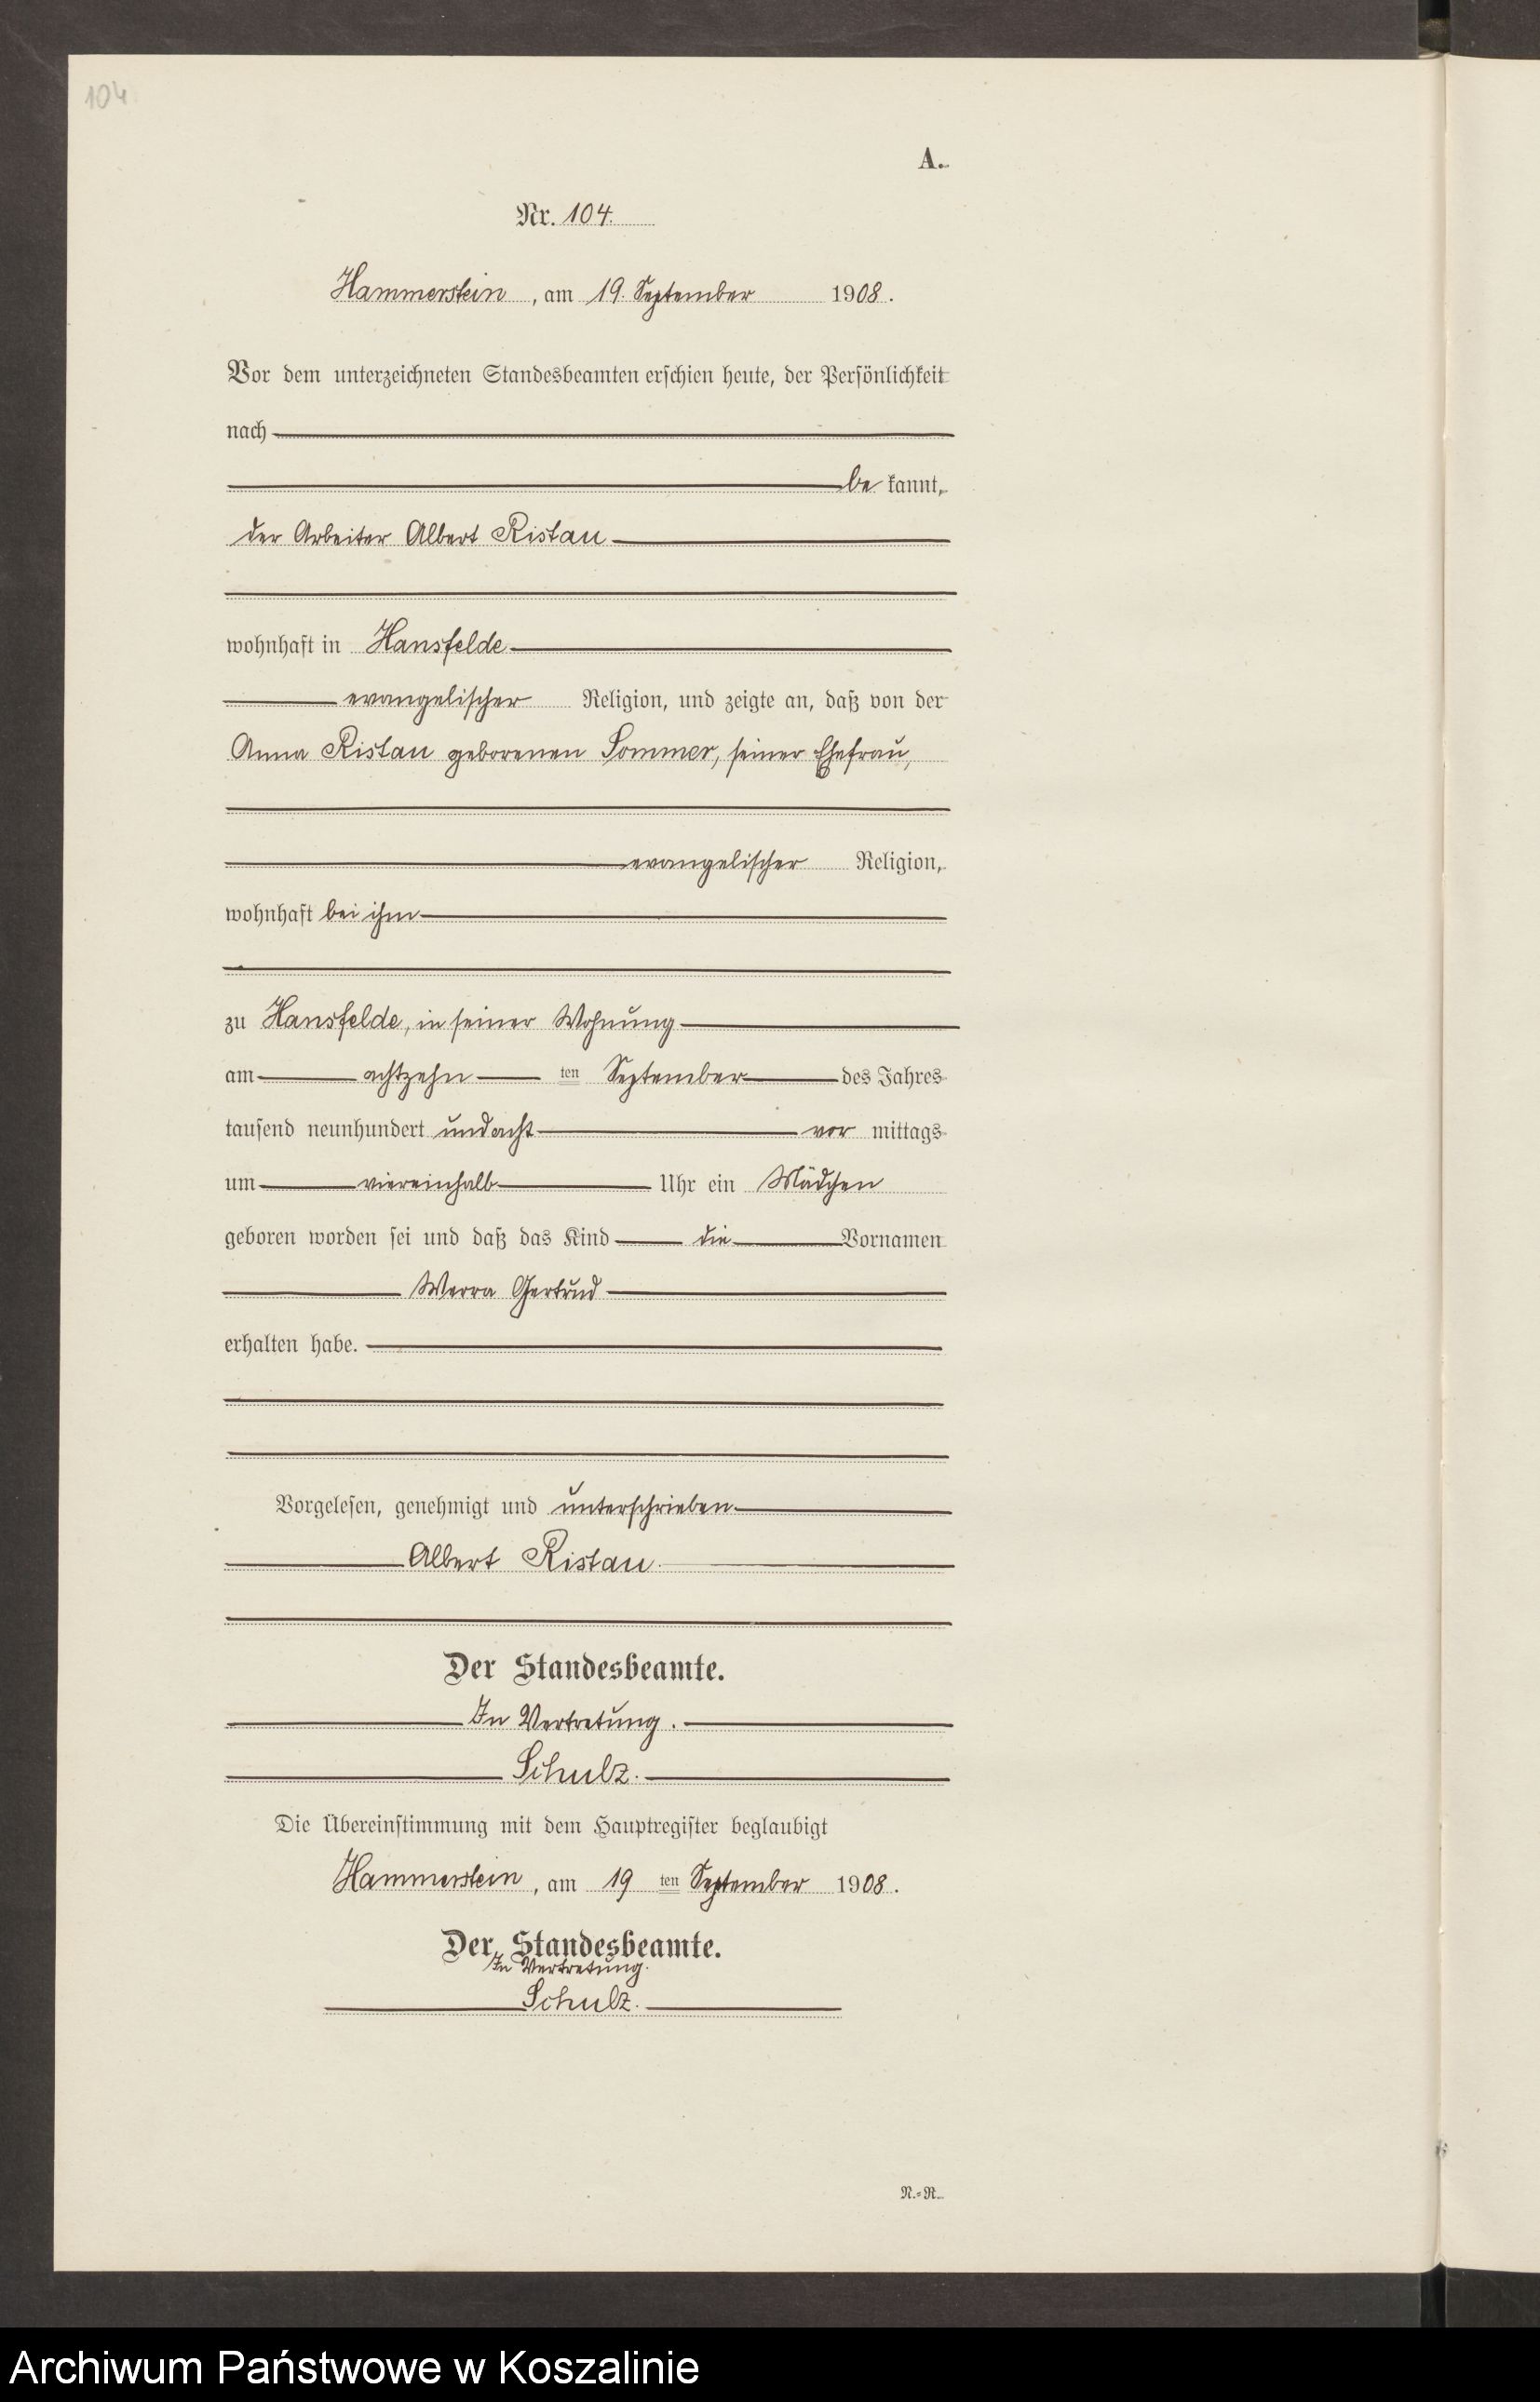 104
A.
Nr. 104.
Hammerstein, am 19. September 1908.
Vor dem unterzeichneten Standesbeamten erschien heute, der Persönlichkeit
nach
be kannt,
der Arbeiter Albert Ristau
wohnhaft in Hansfelde
evangelischer Religion, und zeigte an, daß von der
Anna Ristau geborenen Sommer, seiner Ehefrau,
evangelischer Religion,
wohnhaft bei ihm
zu Hansfelde, in seiner Wohnung
am achtzehn ten September des Jahres
tausend neunhundert undacht vor mittags
um viereinhalb Uhr ein Mädchen
geboren worden sei und daß das Kind die Vornamen
Werra Gertrud
erhalten habe.
Vorgelesen, genehmigt und unterschrieben
Albert Ristau.
Der Standesbeamte.
In Vertretung.
Schulz.
Die Übereinstimmung mit dem Hauptregister beglaubigt
Hammerstein, am 19 ten September 1908.
Der Standesbeamte.
In Vertretung.
Schulz.
N.=R.
Archiwum Państwowe w Koszalinie